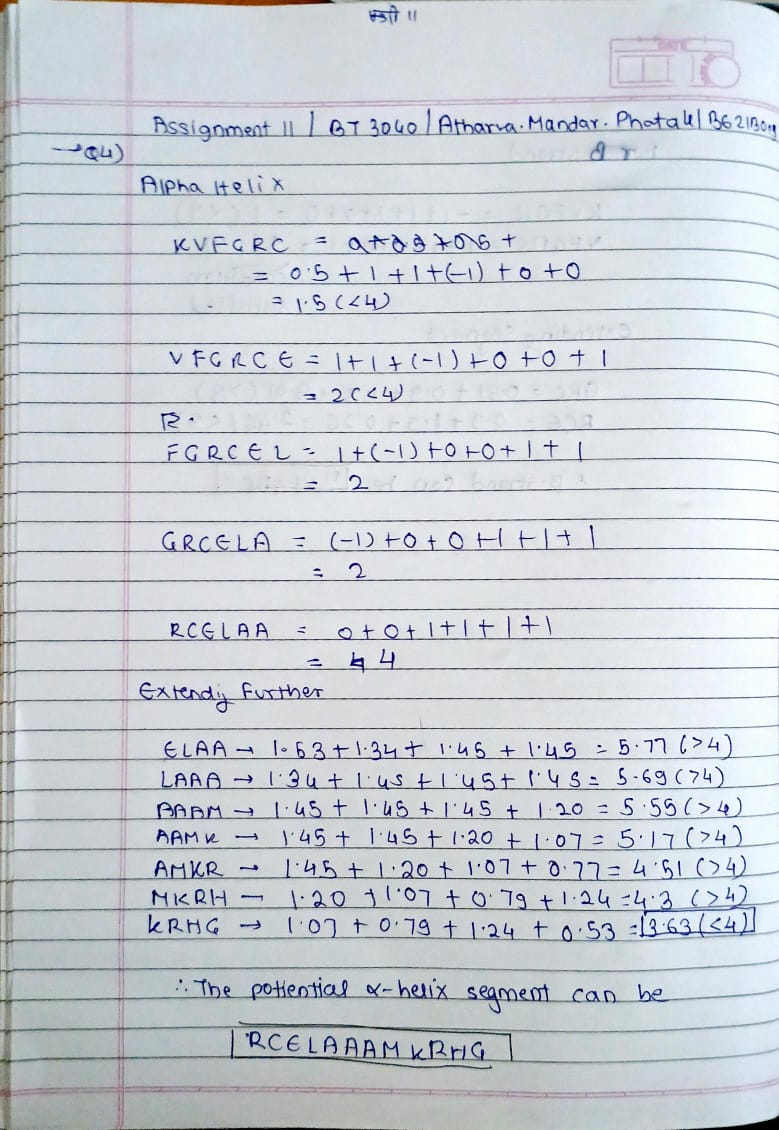 DATE
Assignment 11 / BT 3040 / Atharva. Mandar. Phatak /
→ Q4)
Alpha Helix
KVFGRC =
= 0.5 + 1 + 1 + (-1) + 0 + 0
= 1.5 (<4)
VFGRCE = 1 + 1 + (-1) + 0 + 0 + 1
= 2 (<4)
R.
FGRCEL = 1 + (-1) + 0 + 0 + 1 + 1
= 2
GRCELA = (-1) + 0 + 0 + 1 + 1 + 1
= 2
RCELAA = 0 + 0 + 1 + 1 + 1 + 1
= 4
Extendig Further
ELAA → 1.53 + 1.34 + 1.45 + 1.45 = 5.77 (>4)
LAAA → 1.34 + 1.45 + 1.45 + 1.45 = 5.69 (>4)
AAAM → 1.45 + 1.45 + 1.45 + 1.20 = 5.55 (>4)
AAMK → 1.45 + 1.45 + 1.20 + 1.07 = 5.17 (>4)
AMKR → 1.45 + 1.20 + 1.07 + 0.77 = 4.51 (>4)
MKRH — 1.20 + 1.07 + 0.79 + 1.24 = 4.3 (>4)
KRHG → 1.07 + 0.79 + 1.24 + 0.53 = 3.63 (<4)
∴ The pottential α-helix segment can be
RCELAAAMKRHG